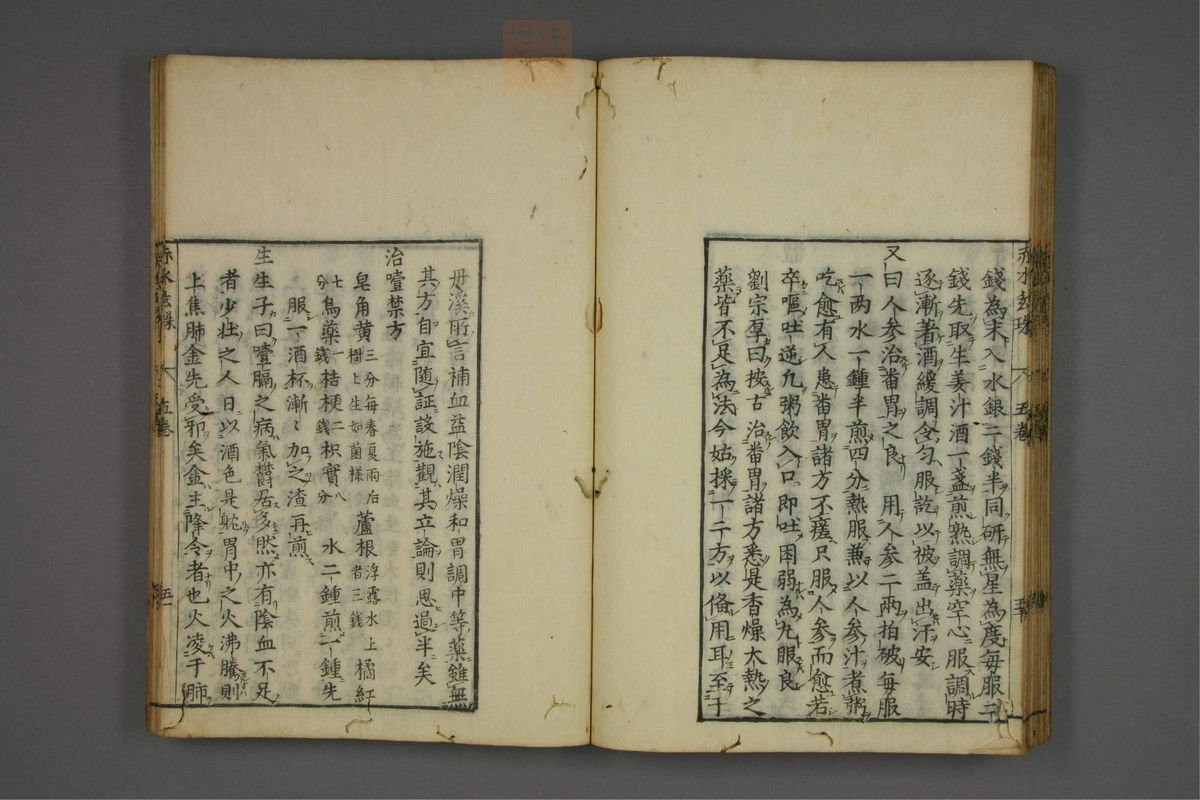 赤水玄珠 五卷 五十
錢為末入水銀二錢半同研無星為度每服二
錢先取生姜汁酒一盞煎熟調藥空心服調時
逐漸著酒緩調令勻服訖以被盖出汗安
又曰人參治畨胃之良 用人參二兩拍破每服
一兩水一鍾半煎四分熱服兼以人參汁煮粥
吃愈有人患畨胃諸方不瘥只服人參而愈若
卒嘔吐逆凢粥飲入口即吐困弱為九服良
劉宗厚曰按古治畨胃諸方悉是香燥大熱之
藥皆不足為法今姑採一二方以俻用耳至于
丹溪所言補血益陰潤燥和胃調中等藥雖無
其方自宜隨証設施觀其立論則思過半矣
治噎禁方
皂角黃三分每春夏雨后樹上生如菌樣蘆根浮露水上者三錢橘紅
七分烏藥一錢枯梗二錢枳實八分 水二鍾煎一鍾先
服一酒杯漸〻加之渣再煎
生生子曰噎膈之病氣欝居多然亦有陰血不足
者少壯之人日以酒色是躭胃中之火沸騰則
上焦肺金先受邪矣金主降令者也火凌于肺
赤水玄珠 五卷 五一